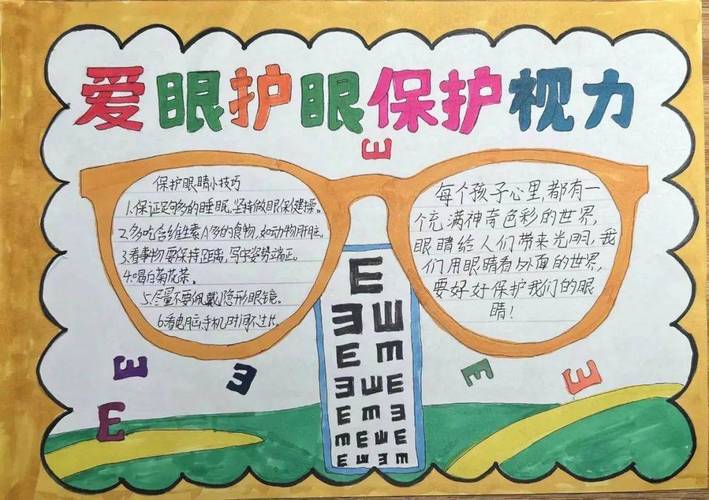 爱眼护眼保护视力
保护眼睛小技巧
1.保证足够多的睡眠,坚持做眼保健操。
2.多吃含维生素A多的食物,如动物肝脏。
3.看事物要保持距离,写字姿势端正。
4.喝白菊花茶。
5.尽量不要佩戴隐形眼镜。
6.看电脑手机时间不过长。
每个孩子心里,都有一
个充满神奇色彩的世界,
眼睛给人们带来光明,我
们用眼睛看外面的世界,
要好好保护我们的眼
睛!
E
E
E
E
E
E
E
E
E E
E E
E E E
E E E
E E E E
E E E E